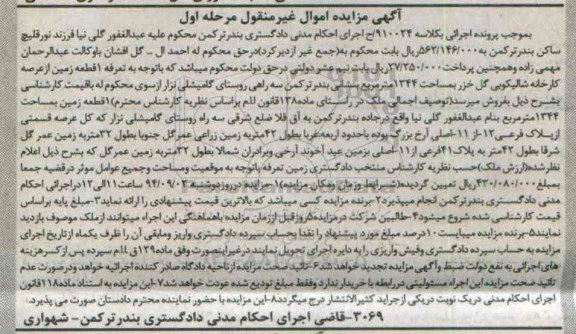 آگهی مزایده اموال غیرمنقول مرحله اول
بموجب پرونده اجرائی بکلاسه ۹۱۰۰۲۴/ح اجرای احکام مدنی دادگستری بندرترکمن محکوم علیه عبدالغفور گلی نیا فرزند نورقلیچ
ساکن بندرترکمن به ۵۶۲/۱۴۶/۰۰۰ریال بابت محکوم به(جمع غیر ازدیرکرد)درحق محکوم له احمد ال ... گل افشان باوکالت عبدالرحمان
مهمی زاده وهمچنین پرداخت ۲۷/۲۵۰/۰۰۰ریال بابت نیم عشر دولتی درحق دولت محکوم میباشد که باتوجه به تعرفه ۱قطعه زمین ازعرصه
کارخانه شالیکوبی گل خزر بمساحت ۱۳۴۴ مترمربع نشانی بندرترکمن سه راهی روستای گامیشلی نزار ازسوی محکوم له باقیمت کارشناسی
بشرح ذیل بفروش میرسد(توصیف اجمالی ملک در راستای ماده۱۳۸قانون ا.ا.م براساس نظریه کارشناس محترم)۱قطعه زمین بمساحت
۱۳۴۴مترمربع بنام عبدالغفور گلی نیا واقع درجاده بندرترکمن به آق قلا ضلع شرقی سه راه روستای گامیشلی نزار که کل عرصه قسمتی
ازپلاک فرعی۱۲- از ۱۱-اصلی آرخ بزرگ بوده باحدود اربعه:غربا بطول ۴۲متربه زمین زراعی عمرگل جنوبا بطول ۳۲متربه زمین عمر گل
شرقا بطول ۴۲متر به پلاک ۴۱فرعی از ۱۱-اصلی بزمین عید آخوند آرخی وبرادران شمالا بطول ۳۲متربه زمین عمرگل که بشرح ذیل اعلام
نظرشده(ارزش ملک)حسب نظریه کارشناس منتخب دادگستری زمین تعرفه باتوجه به موقعیت ومساحت وجمیع عوامل موثر درقضیه جمعا
بمبلغ ۴۳۰/۰۸۰/۰۰۰ریال تعیین گردیده(شرایط وزمان ومکان مزایده)۱-مزایده در روزدوشنبه ۹۴/۰۹/۰۲ ساعت ۱۱الی۱۲دراجرائی احکام
مدنی دادگستری بندرترکمن انجام میپذیرد۲-برنده مزایده کسی میباشد که بالاترین قیمت پیشنهادی را ارائه نماید۳-مبلغ پایه براساس
قیمت کارشناسی شده شروع میشود۴-طالبین شرکت درمزایده۵روزقبل اززمان مزایده باهماهنگی این اجراء میتوانند ازملک موصوف بازدید
نمایند۵-برنده مزایده میبایست ۱۰درصد مبلغ مورد پیشنهاد را نقدا بحساب سپرده دادگستری واریز ومابقی آن را ظرف یکماه ازتاریخ اجرای
مزایده به حساب سپرده دادگستری وفیش واریزی را به دایره اجرای تحویل نمایند درغیراینصورت وفق ماده۱۲۹ق.ا.ا.م سپرده پس ازکسرهزینه
های اجرائی به نفع دولت ضبط وآگهی مزایده تجدید خواهد شد۶-تائید صحت مزایده ازناحیه دادگاه صادر کننده اجرائیه خواهد ودرصورت عدم
تائید صحت مزایده این اجراء مسئولیتی دررابطه با خریدار ندارد وفقط مبلغ تودیع شده عودت خواهد شد۷-این مزایده به استناد ماده۱۱۸قانون
اجرای احکام مدنی دریک نوبت دریکی ازجراید کثیرالانتشار درج میگردد۸-این مزایده با حضور نماینده محترم دادستان صورت می پذیرد.
۳۰۶۹-قاضی اجرای احکام مدنی دادگستری بندرترکمن- شهواری